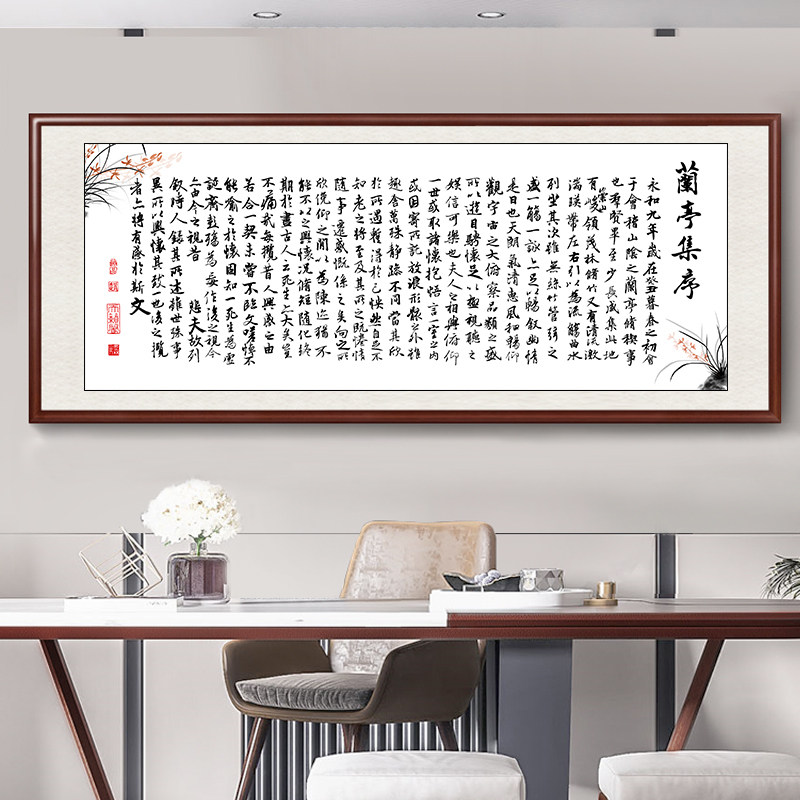 蘭亭集序
永和九年歲在癸丑暮春之初會
于會稽山陰之蘭亭脩稧事
也羣賢畢至少長咸集此地
有崇山峻領茂林脩竹又有清流激
湍暎帶左右引以為流觴曲水
列坐其次雖無絲竹管弦之
盛一觴一詠亦足以暢叙幽情
是日也天朗氣清惠風和暢仰
觀宇宙之大俯察品類之盛
所以遊目騁懷足以極視聽之
娛信可樂也夫人之相與俯仰
一世或取諸懷抱悟言一室之內
或因寄所託放浪形骸之外雖
趣舍萬殊靜躁不同當其欣
於所遇暫得於己怏然自足不
知老之將至及其所之既惓情
隨事遷感慨係之矣向之所
欣俛仰之間以為陳迹猶不
能不以之興懷況脩短隨化終
期於盡古人云死生亦大矣豈
不痛哉每攬昔人興感之由
若合一契未嘗不臨文嗟悼不
能喻之於懷固知一死生為虛
誕齊彭殤為妄作後之視今
亦由今之視昔悲夫故列
叙時人錄其所述雖世殊事
異所以興懷其致一也後之攬
者亦將有感於斯文